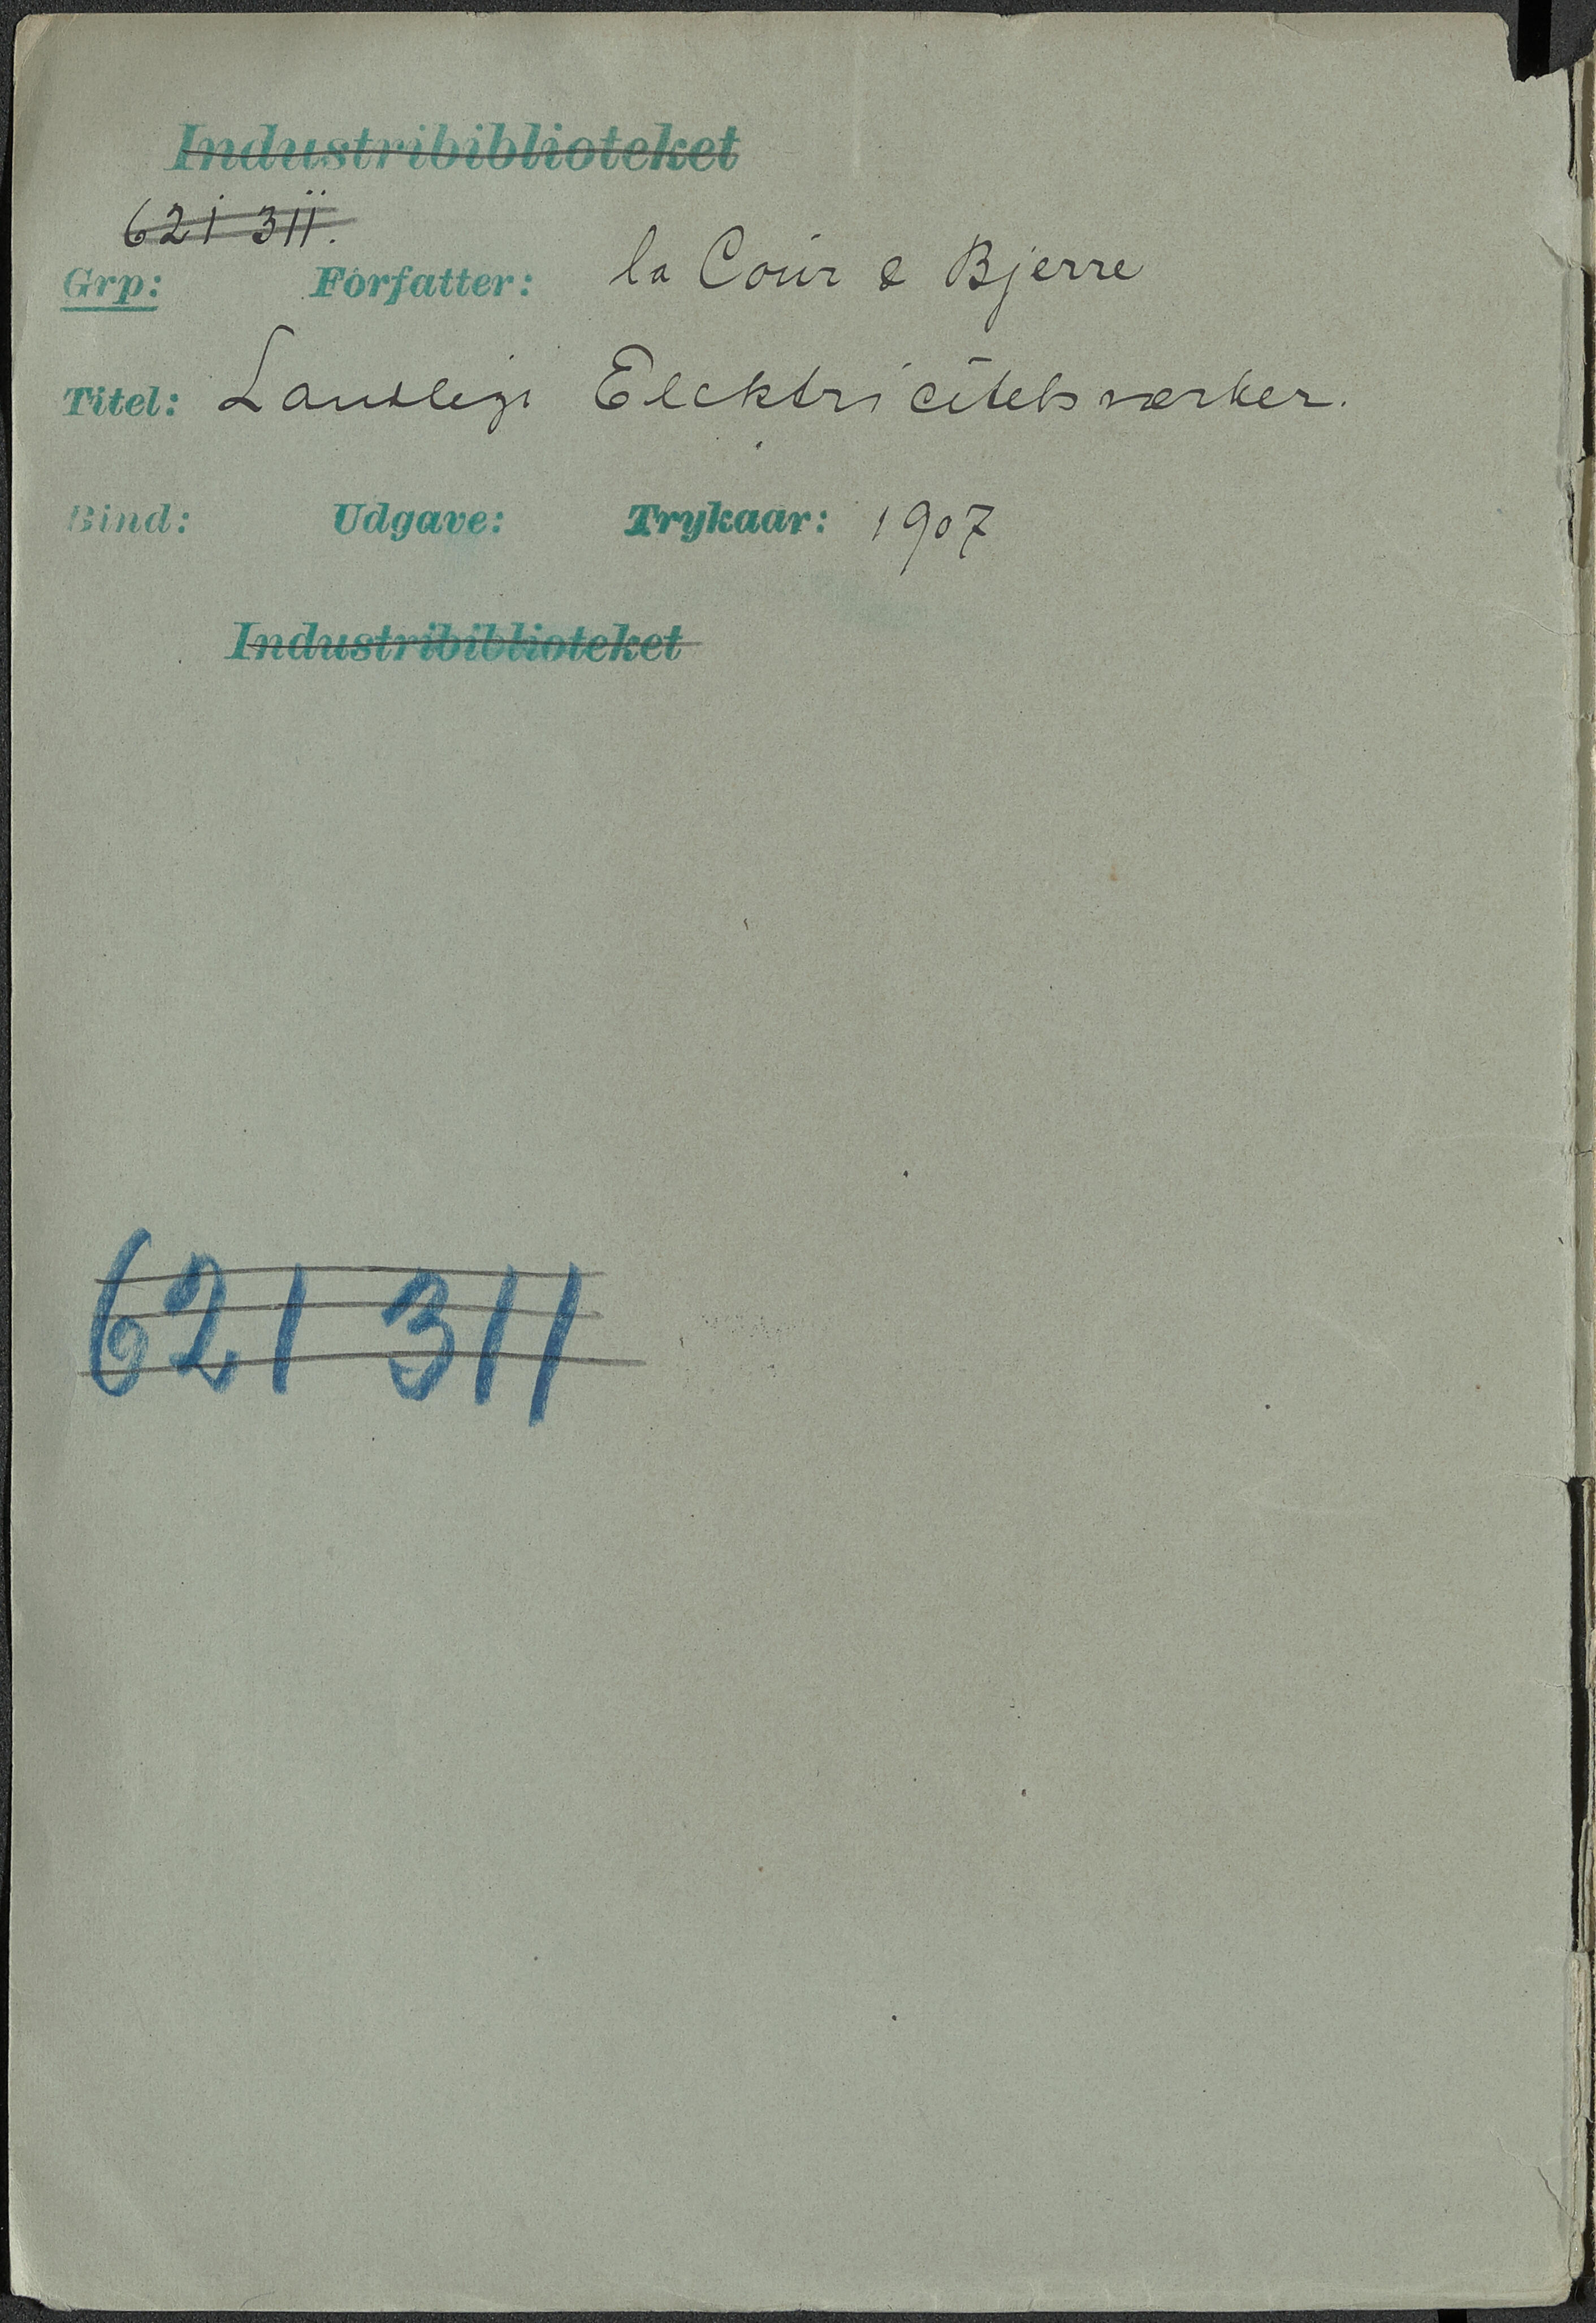 Industribiblioteket
621 311.
Grp: Forfatter: la Cour & Bjerre
Titel: Landlige Elektricitetsværker.
Bind: Udgave: Trykaar: 1907
Industribiblioteket
621 311